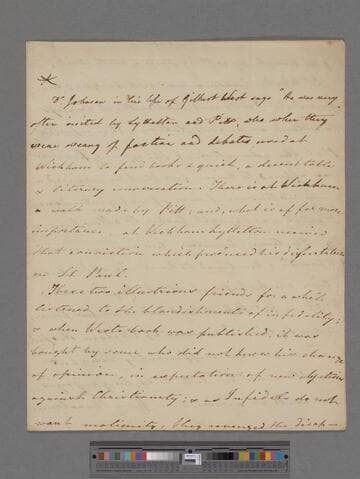 *
Dr Johnson in his life of Gilbert West says "He was very
often visited by Lyttelton and Pitt, who when they
were weary of faction and debates used at
Wickham to find books & quiet, a decent table
& literary conversation. There is at Wickham
a walk made by Pitt; and, what is of far more
importance, at Wickham Lyttelton received
that conviction which produced his dissertation
on St Paul.
These two illustrious friends for a while
listened to the blandishments of infidelity;
& when West's book was published, it was
bought by some who did not know his change
of opinion, in expectation of new objections
against Christianity; & as Infidels do not
want malignity, they revenged the disap-